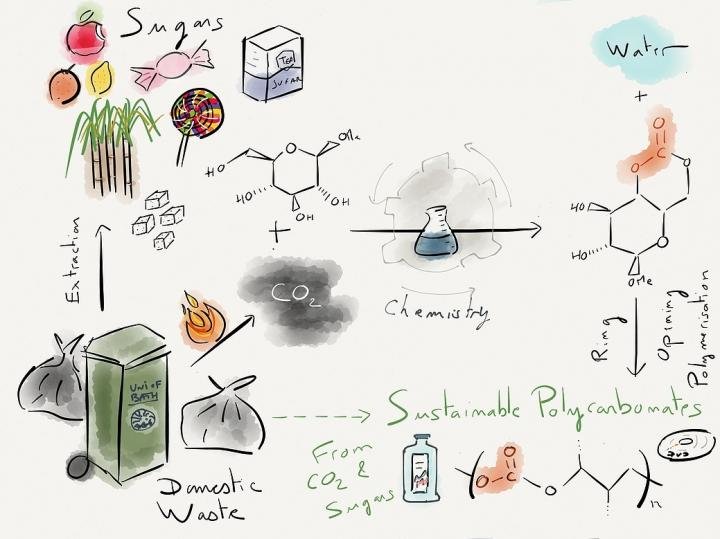 Sugars
TEA
SUGAR
HO
O
OMe
HO
OH
OH
+
CO2
Chemistry
Water
+
O
O
C
O
HO
HO
O
OMe
Extraction
Ring
Opining
Polymerisation
UNI OF
BATH
Domestic
Waste
Sustainable Polycarbonates
From
CO2 &
Sugars
O
O
C
O
n
DVD